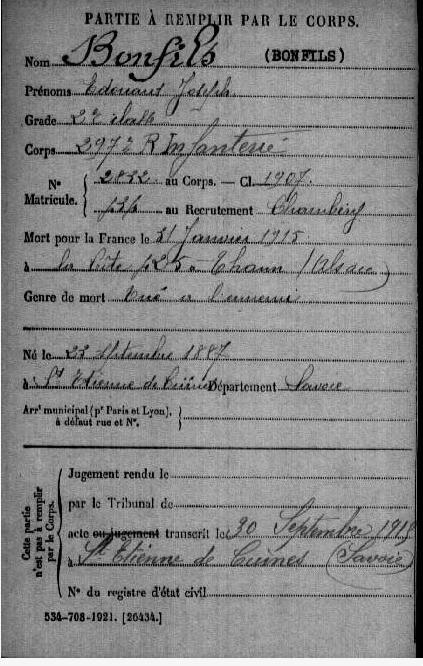 PARTIE À REMPLIR PAR LE CORPS.
Nom Bonfils (BONFILS)
Prénoms Edouard Joseph
Grade 2e classe
Corps 297e R Infanterie
Nº Matricule. { 2822 au Corps. — Cl. 1907.
au Recrutement Chambéry
Mort pour la France le 31 Janvier 1915
à la Côte 425 - Thann (Alsace)
Genre de mort Tué à l'ennemi
Né le 23 Septembre 1887
à St Etienne de Cuines Département Savoie
Arrt municipal (pr Paris et Lyon),
à défaut rue et Nº.
Cette partie n'est pas à remplir par le Corps.
Jugement rendu le
par le Tribunal de
acte ou jugement transcrit le 30 Septembre 1915
à St Etienne de Cuines (Savoie)
Nº du registre d'état civil
534-708-1921. [26434.]